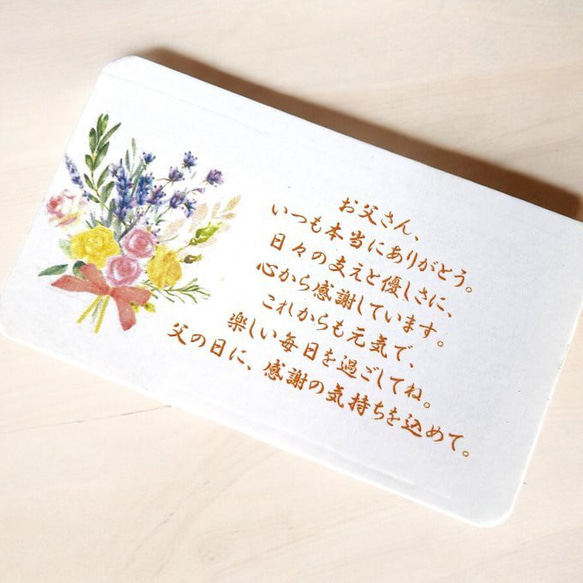 お父さん、
いつも本当にありがとう。
日々の支えと優しさに、
心から感謝しています。
これからも元気で、
楽しい毎日を過ごしてね。
父の日に、感謝の気持ちを込めて。